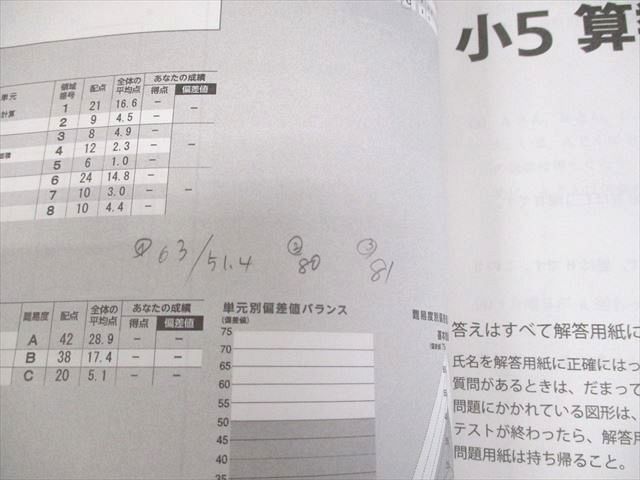 単元 領域番号 配点 全体の平均点 あなたの成績 得点 偏差値
計算 1 21 16.6 － －
2 9 4.5 －
3 8 4.9 －
4 12 2.3 － －
5 6 1.0 －
6 24 14.8 －
7 10 3.0 － －
8 10 4.4 －
① 63/51.4 ② 80 ③ 81
難易度 配点 全体の平均点 あなたの成績 得点 偏差値
A 42 28.9 － －
B 38 17.4 － －
C 20 5.1 － －
単元別偏差値バランス
(偏差値)
75
70
65
60
55
50
45
40
35
難易度別偏差
小5 算
答えはすべて解答用紙に
氏名を解答用紙に正確にはっ
質問があるときは、だまって
問題にかかれている図形は、
テストが終わったら、解答用
問題用紙は持ち帰ること。